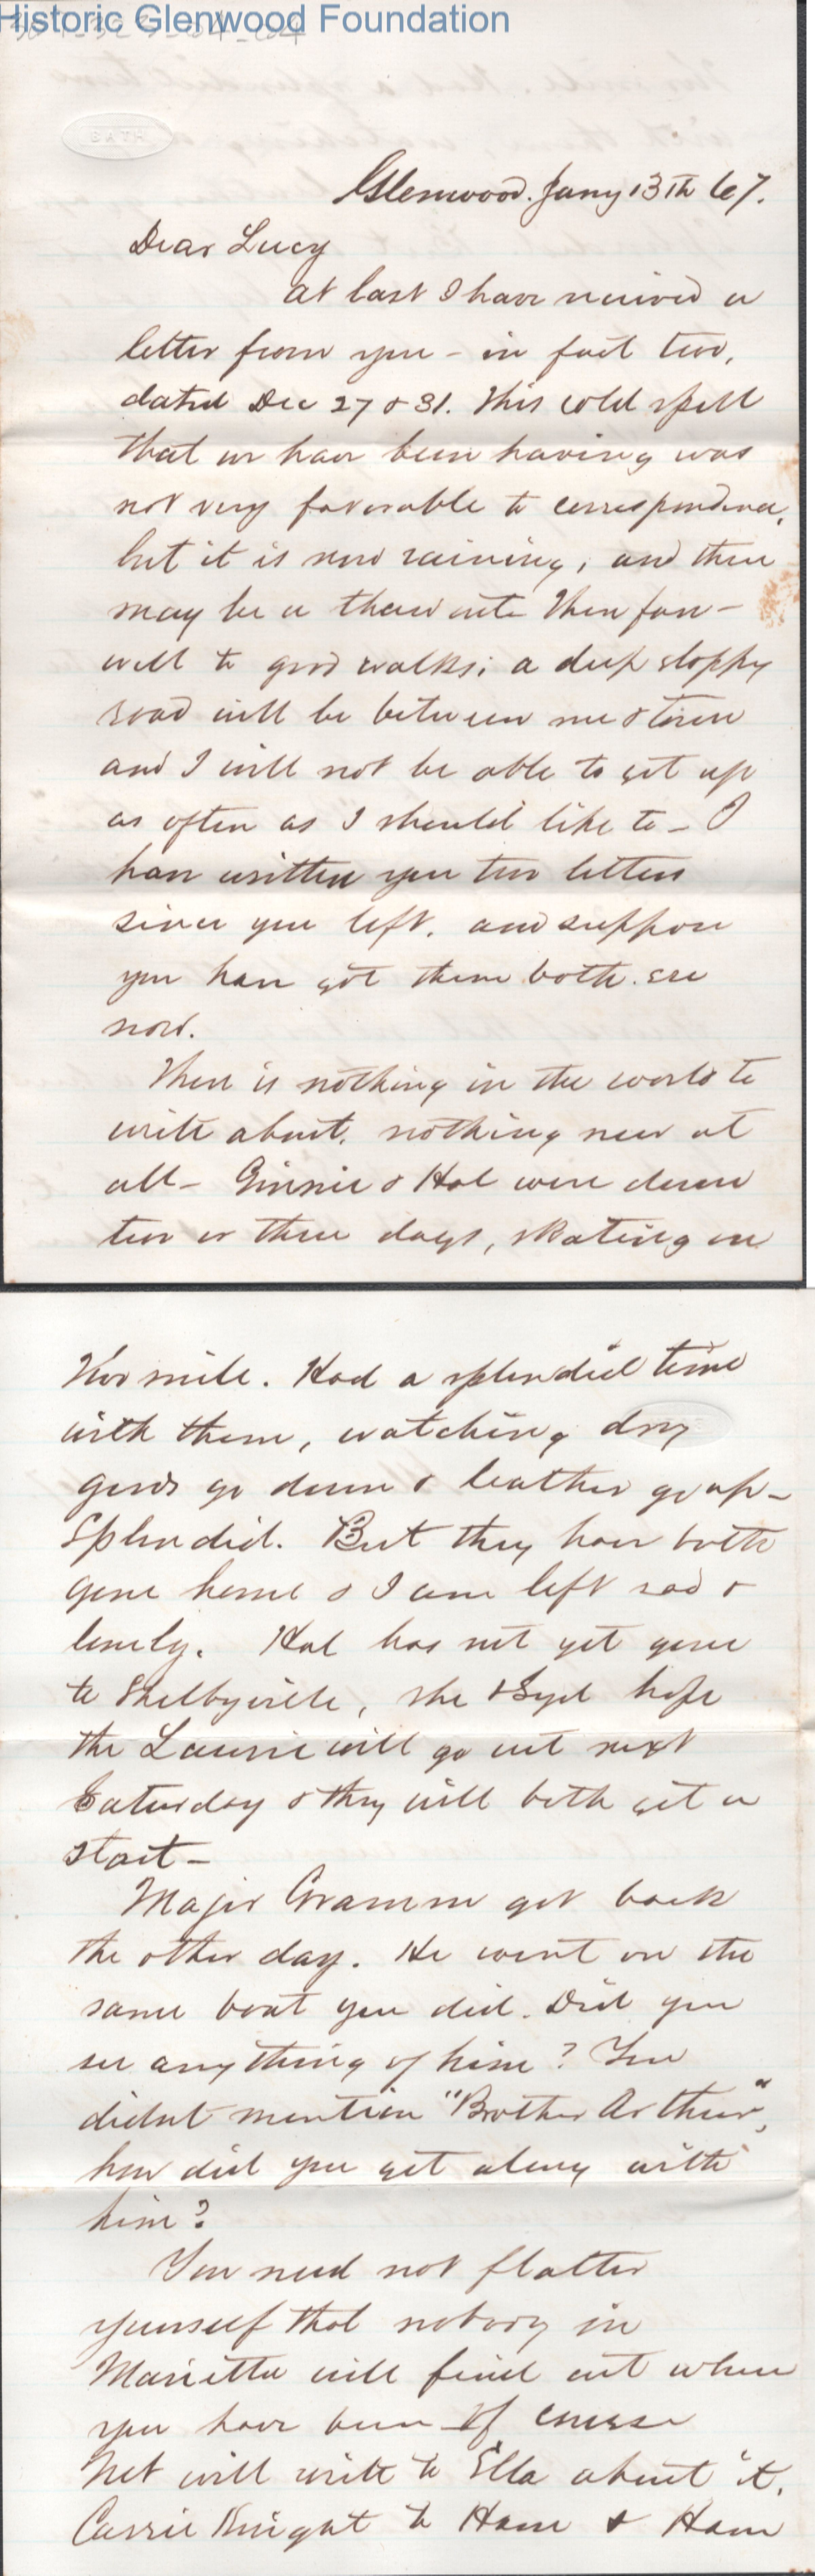 Historic Glenwood Foundation
BATH
Glenwood. Jany 13Th 67.
Dear Lucy
At last I have received a
letter from you - in fact two,
dated Dec 27 & 31. This cold spell
that we have been having was
not very favorable to correspondence,
but it is now raining, and there
may be a thaw out. Then fare-
well to good walks; a deep sloppy
road will be between me & town
and I will not be able to get up
as often as I should like to - I
have written you two letters
since you left. and suppose
you have got them both ere
now.
There is nothing in the world to
write about. nothing new at
all - Ginnie & Hal were down
two or three days, skating on
mile. Had a splendid time
with them, watching dry
goods go down & leather go up -
Splendid. But they have both
gone home & I am left sad &
lonely. Hal has not yet gone
to Shelbyville, she & Syd hope
the Laurie will go out next
Saturday & they will both get a
start -
Major Gramm got back
the other day. He went on the
same boat you did. Did you
see anything of him? You
didnt mention "Brother Arthur",
how did you get along with
him?
You need not flatter
yourself that nobody in
Marietta will find out where
you have been - Of course
Net will write to Ella about it,
Carrie Knight to Ham & Ham